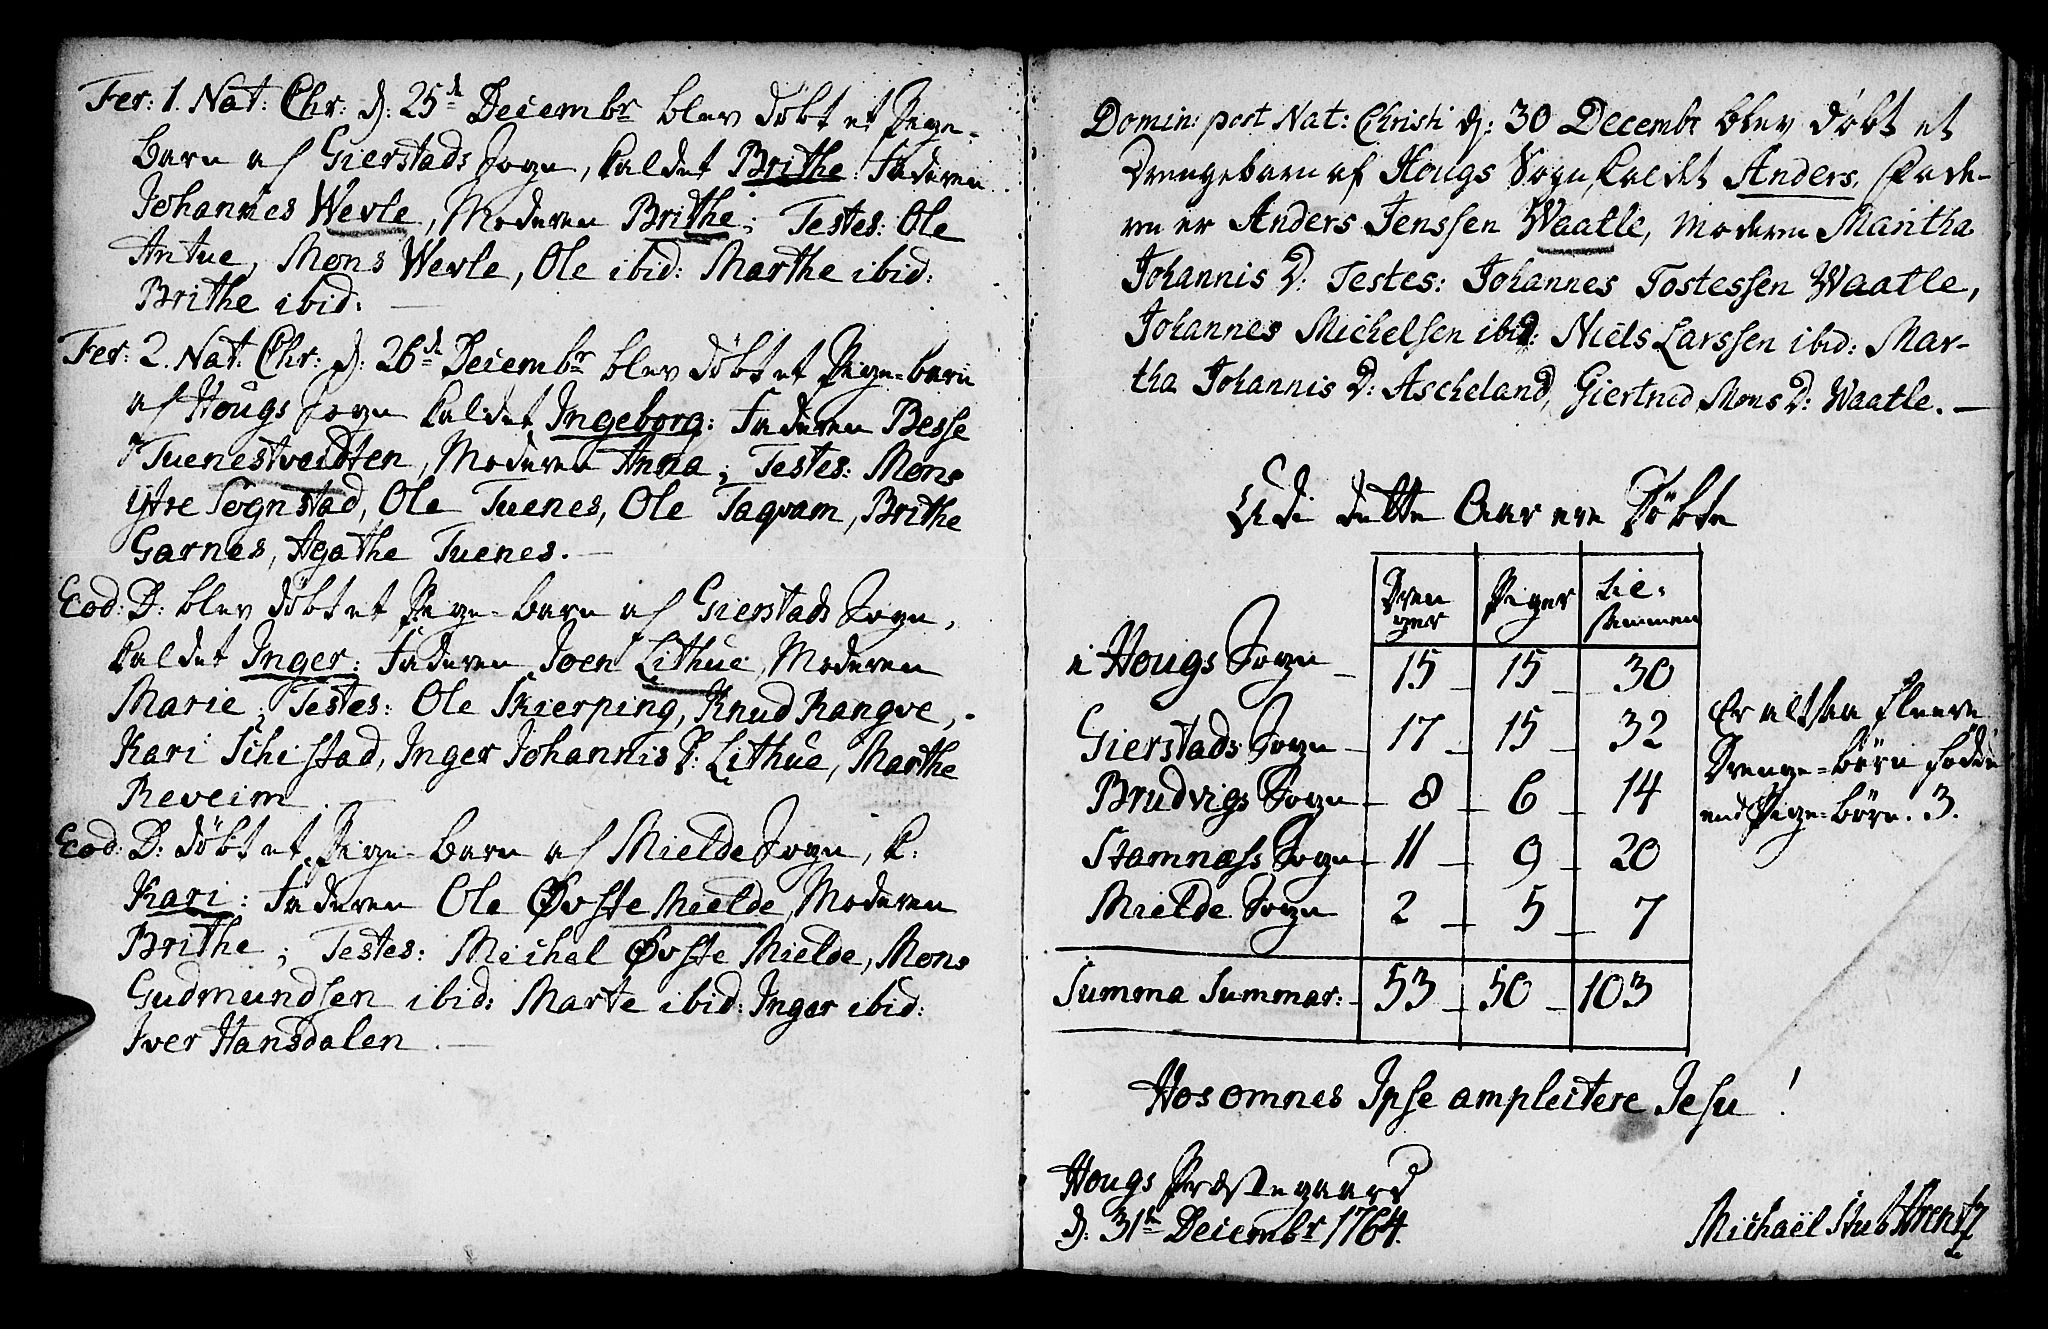 Fer: 1. Nat: Chr: d: 25de Decembr blev döbt et Pige-
barn af Gierstads Sogn, kaldet Brithe Faderen
Johannes Wevle, Moderen Brithe; Testes: Ole
Antue, Mons Wevle, Ole ibid: Marthe ibid:
Brithe ibid: —
Fer: 2. Nat: Chr: d: 26de Decembr blev döbt et Pige-barn
af Hougs Sogn kaldet Ingeborg: Faderen Besse
Tuenestveidten, Moderen Anna; Testes: Mons
ÿtre Sognstad, Ole Tuenes, Ole Taqvam, Brithe
Garnes, Agathe Tuenes. —
Eod: D: blev döbt et Pige-barn af Gierstads Sogn,
kaldet Inger: Faderen Joen Lithue, Moderen
Marie; Testes: Ole Skierping, Knud Rangve,
Kari Schistad, Inger Johannis D: Lithue, Marthe
Reveim
Eod: D: döbt et Pige-barn af Mielde Sogn, k:
Kari: Faderen Ole Øvste Mielde, Moderen
Brithe; Testes: Michel Øvste Mielde, Mons
Gudmundsen ibid: Marte ibid: Inger ibid:
Iver Hansdalen. —
Domin: post Nat: Christi d: 30 Decembr blev döbt et
Drengebarn af Hougs Sogn, kaldet Anders, Fade-
ren er Anders Jenssen Waatle, Moderen Maritha
Johannis D: Testes: Johannes Tostessen Waatle,
Johannes Michelsen ibid: Niels Larssen ibid: Mar-
tha Johannis D: Ascheland, Giertrud Mons D: Waatle. —
Udi dette Aar ere Döbte
Dren Piger Til-
ger sammen
i Hougs Sogn — 15 — 15 — 30
Gierstads Sogn — 17 — 15 — 32
Brudvigs Sogn — 8 — 6 — 14
Stamnæss Sogn — 11 — 9 — 20
Mielde Sogn 2 — 5 — 7
Summa Summar: — 53 — 50 — 103
Er altsaa fleere
Drenge-börn födde
end Pige-börn. 3.
Hos omnes Ipse amplectere Jesu!
Hougs Præstegaard
d: 31te Decembr 1764.
Michaël Stub Arentz